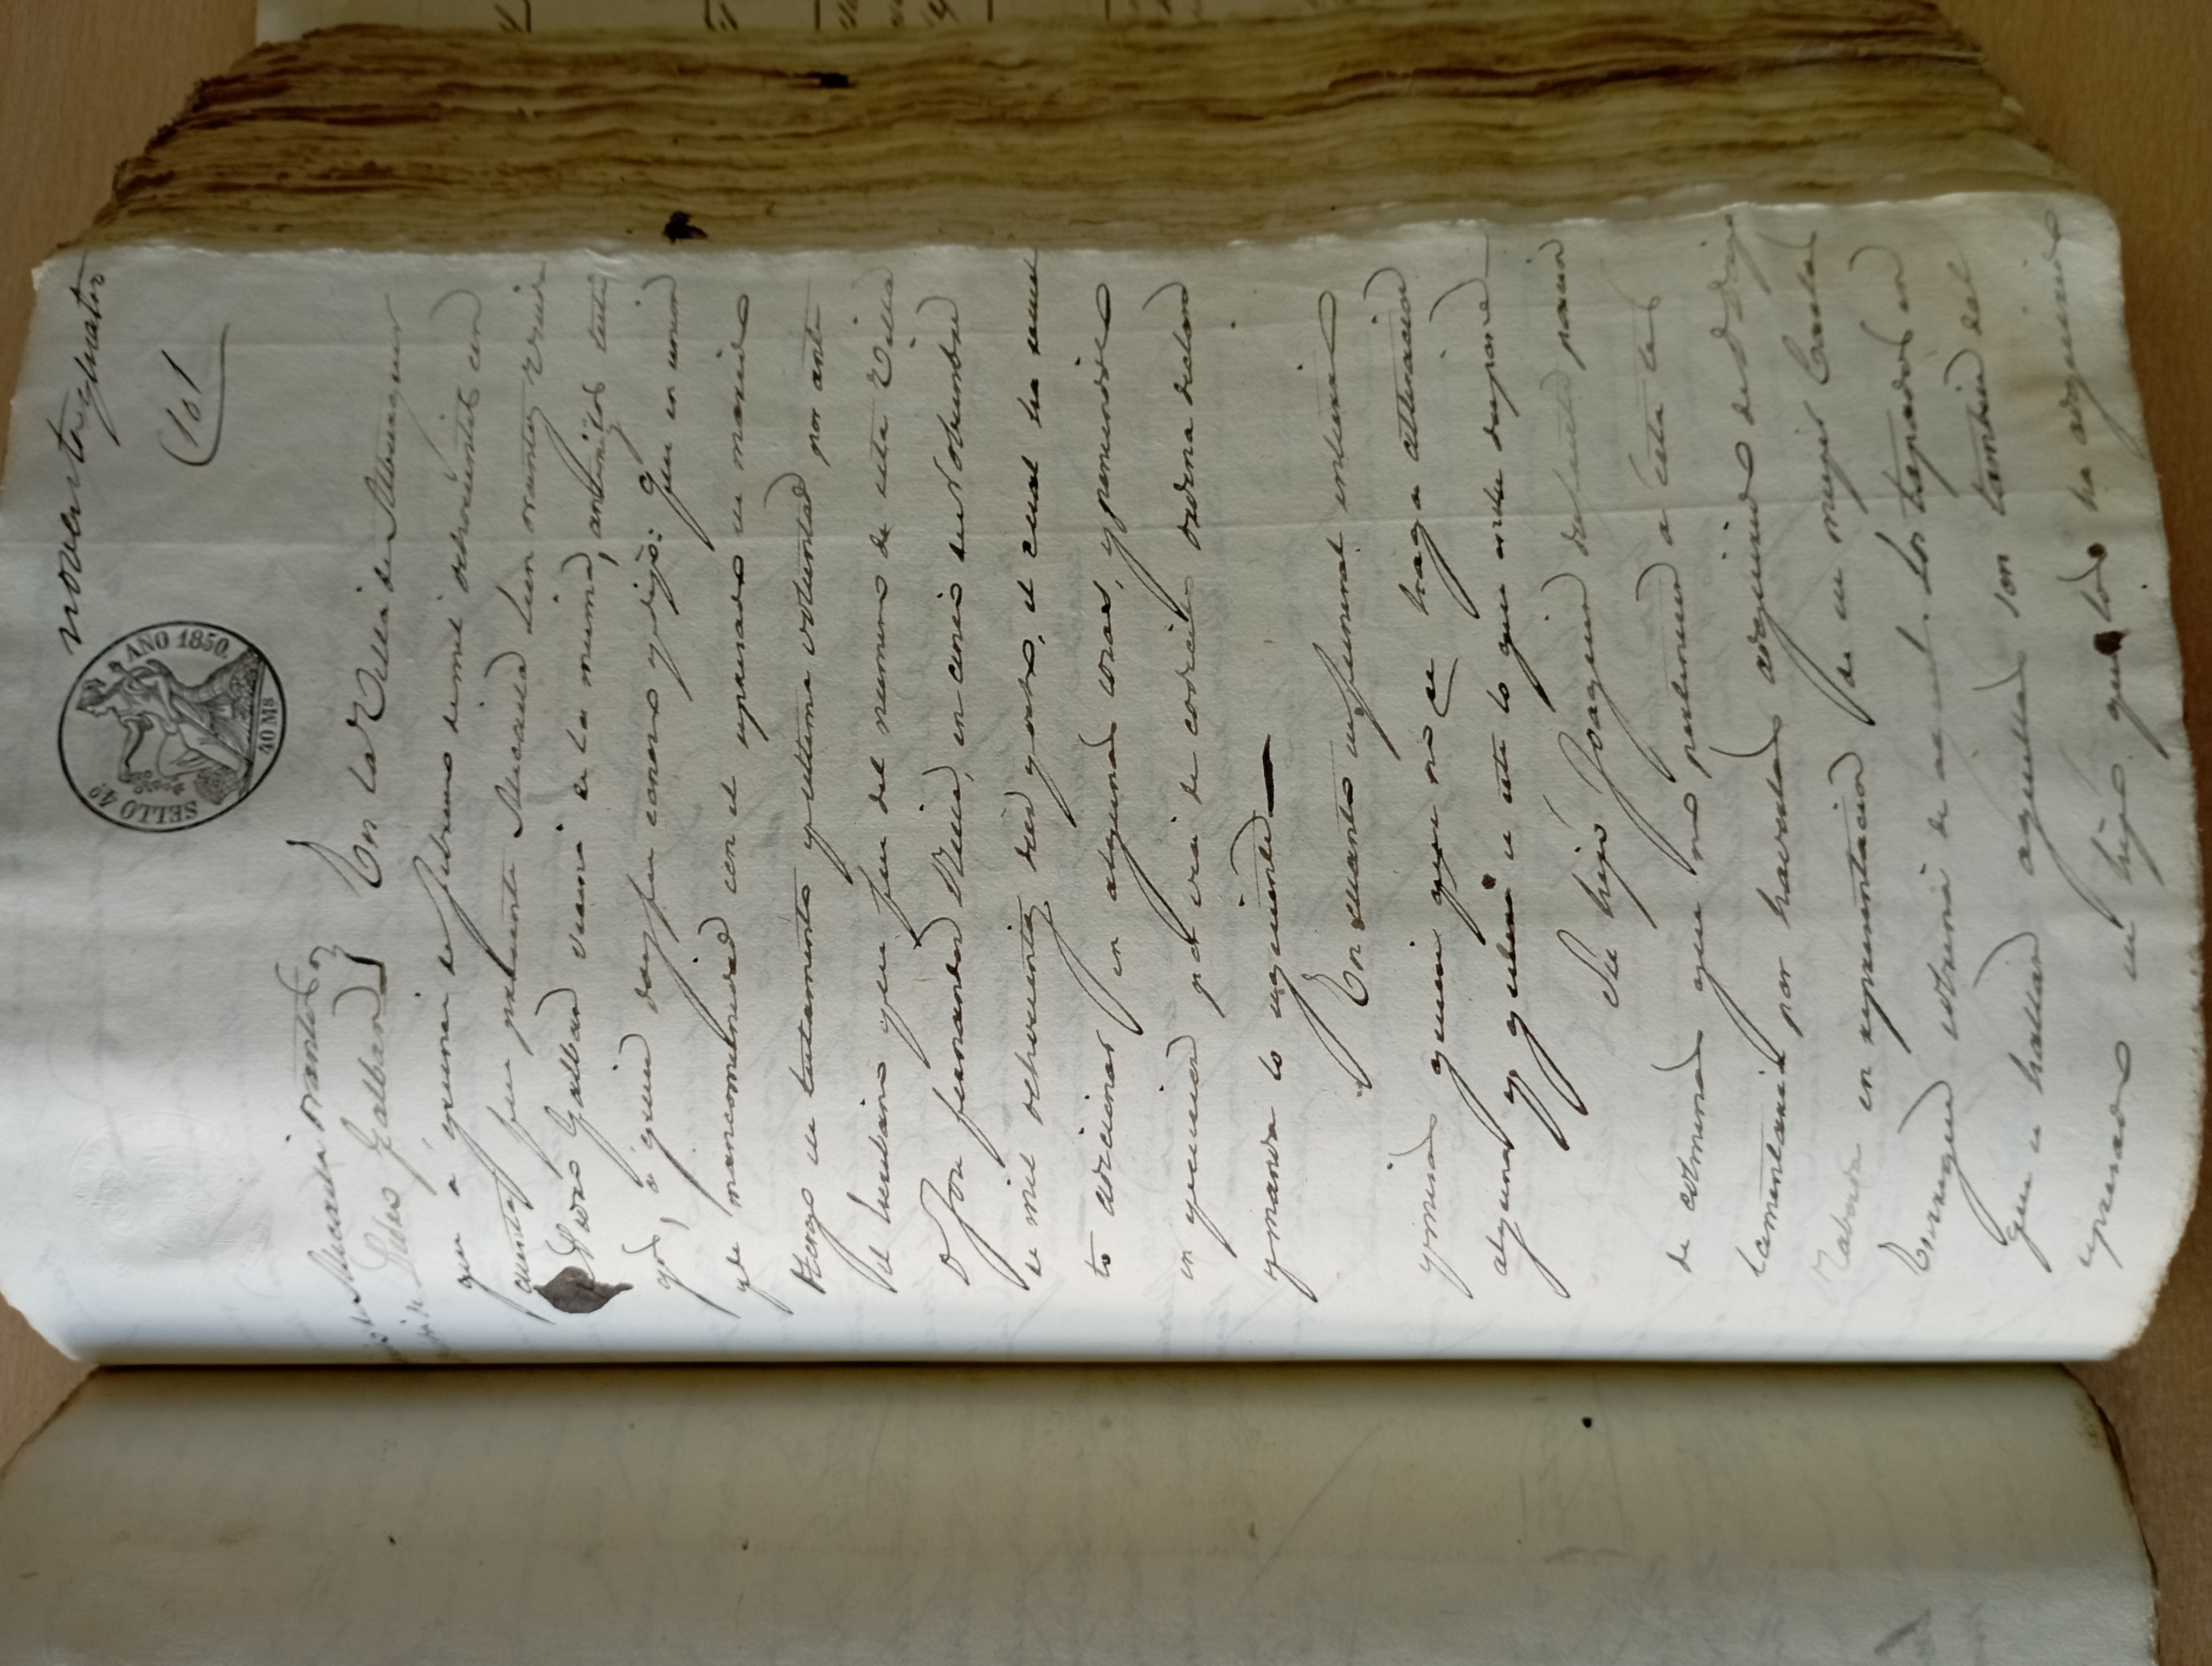 noventa y cuatro
SELLO 4º AÑO 1850.
40 Ms
(101
de Micaela Orantes
de Pedro Galban
En la Villa de Alburquer
que á quince de febrero de mil ochocientos cin
cuenta fue presente Micaela Leon Orantes viuda
de Pedro Galban vecina de la misma, ante mi y los testi
gos, á quien doy fee conozco y dijo: Que en union
y de mancomunidad con el espresado su marido
otorgo su testamento y ultima voluntad por ante
el Escribano que fue del numero de esta Villa
D Jose Fernandez en cinco de Nobiembre
de mil ochocientos diez y ocho, el cual ha resuel
to adicionar en algunas cosas, y poniendolo
en ejecucion por via de codicilo ordena declara
y manda lo siguiente
En cuanto su funeral entierro
y misas quiere que no se haga alteracion
alguna y se este lo que en el dispone
Su hijo Joaquin porcion
de colmenas que no pertenecen a esta tes
tamentaria por haverlas adquirido de D Diego
Taborda en representacion de su muger Carlota
sobrina de aquel. Los tapados en
que se hallan aquellas son tambien del
espresado su hijo que los ha adquirido